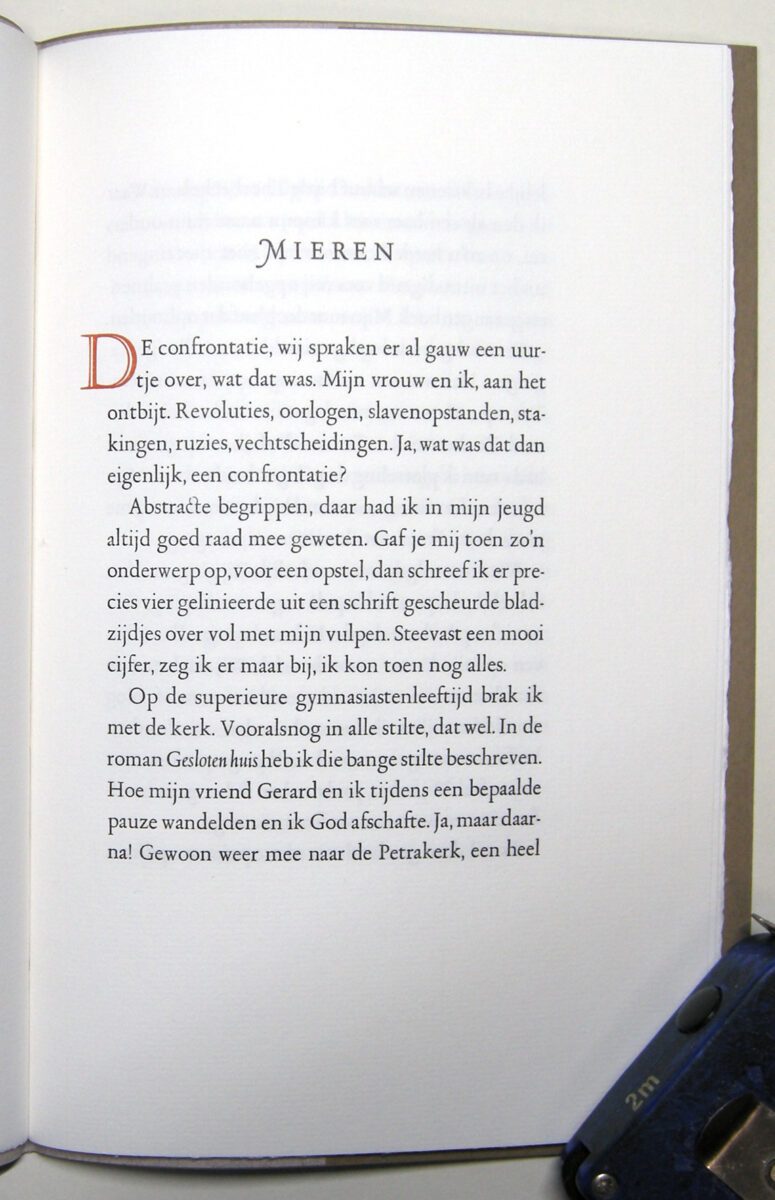 MIEREN
DE confrontatie, wij spraken er al gauw een uur-
tje over, wat dat was. Mijn vrouw en ik, aan het
ontbijt. Revoluties, oorlogen, slavenopstanden, sta-
kingen, ruzies, vechtscheidingen. Ja, wat was dat dan
eigenlijk, een confrontatie?
Abstracte begrippen, daar had ik in mijn jeugd
altijd goed raad mee geweten. Gaf je mij toen zo'n
onderwerp op, voor een opstel, dan schreef ik er pre-
cies vier gelinieerde uit een schrift gescheurde blad-
zijdjes over vol met mijn vulpen. Steevast een mooi
cijfer, zeg ik er maar bij, ik kon toen nog alles.
Op de superieure gymnasiastenleeftijd brak ik
met de kerk. Vooralsnog in alle stilte, dat wel. In de
roman Gesloten huis heb ik die bange stilte beschreven.
Hoe mijn vriend Gerard en ik tijdens een bepaalde
pauze wandelden en ik God afschafte. Ja, maar daar-
na! Gewoon weer mee naar de Petrakerk, een heel
2m